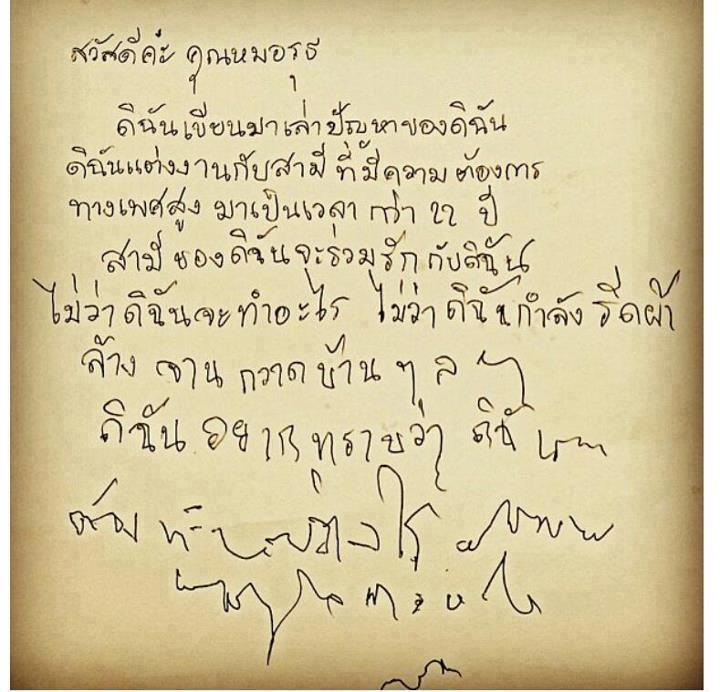 สวัสดีค่ะ คุณหมอรุธ
ดิฉันเขียนมาเล่าปัญหาของดิฉัน
ดิฉันแต่งงานกับสามี ที่มีความต้องการ
ทางเพศสูง มาเป็นเวลา กว่า 22 ปี
สามีของดิฉันจะร่วมรักกับดิฉัน
ไม่ว่าดิฉันจะทำอะไร ไม่ว่าดิฉันกำลังรีดผ้า
ล้าง จาน กวาดบ้าน ฯลฯ
ดิฉัน อยากทราบว่า ดิฉัน
ต้อง